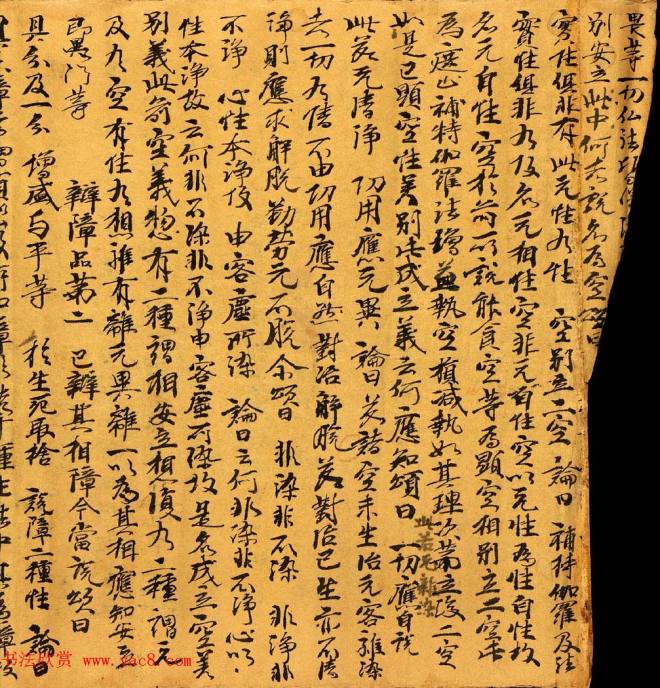 畏等一切仏法
别安立此中何故説名為空頌曰
實性俱非有 此无性有性 空别立二空 論曰 補特伽羅及法
實性俱非有故名无相性空非无自性空以无性為性自性故
名无自性空於前所説能食空等為顯空相别立二空此
為遮止補特伽羅法増益執空損減執如其理次第立後二空
如是已顯空性差别此成立義云何應知頌曰 一切應自脱
此若无雜染
此若无清淨 功用應无異 論曰 若諸空未生治无客雜染
者一切有情不由功用應自然對治解脱若對治已生亦不清
淨則應求解脱勤勞无不脱尒頌曰 非染非不染 非淨非
不淨 心性本淨故 由客塵所染 論曰云何非染非不淨心以
性本淨故云何非不染非不淨由客塵所染故是名成立空差
别義此前空義惣有二種謂相安立相復有二種謂无
及有空有性有相離有離无異離一以為其相應知安立
即異門等
辯障品第二 已辯其相障今當説頌曰
具分及一分 増盛与平等 於生死取捨 説障二種性 論曰
书法欣赏 www.yac8.com